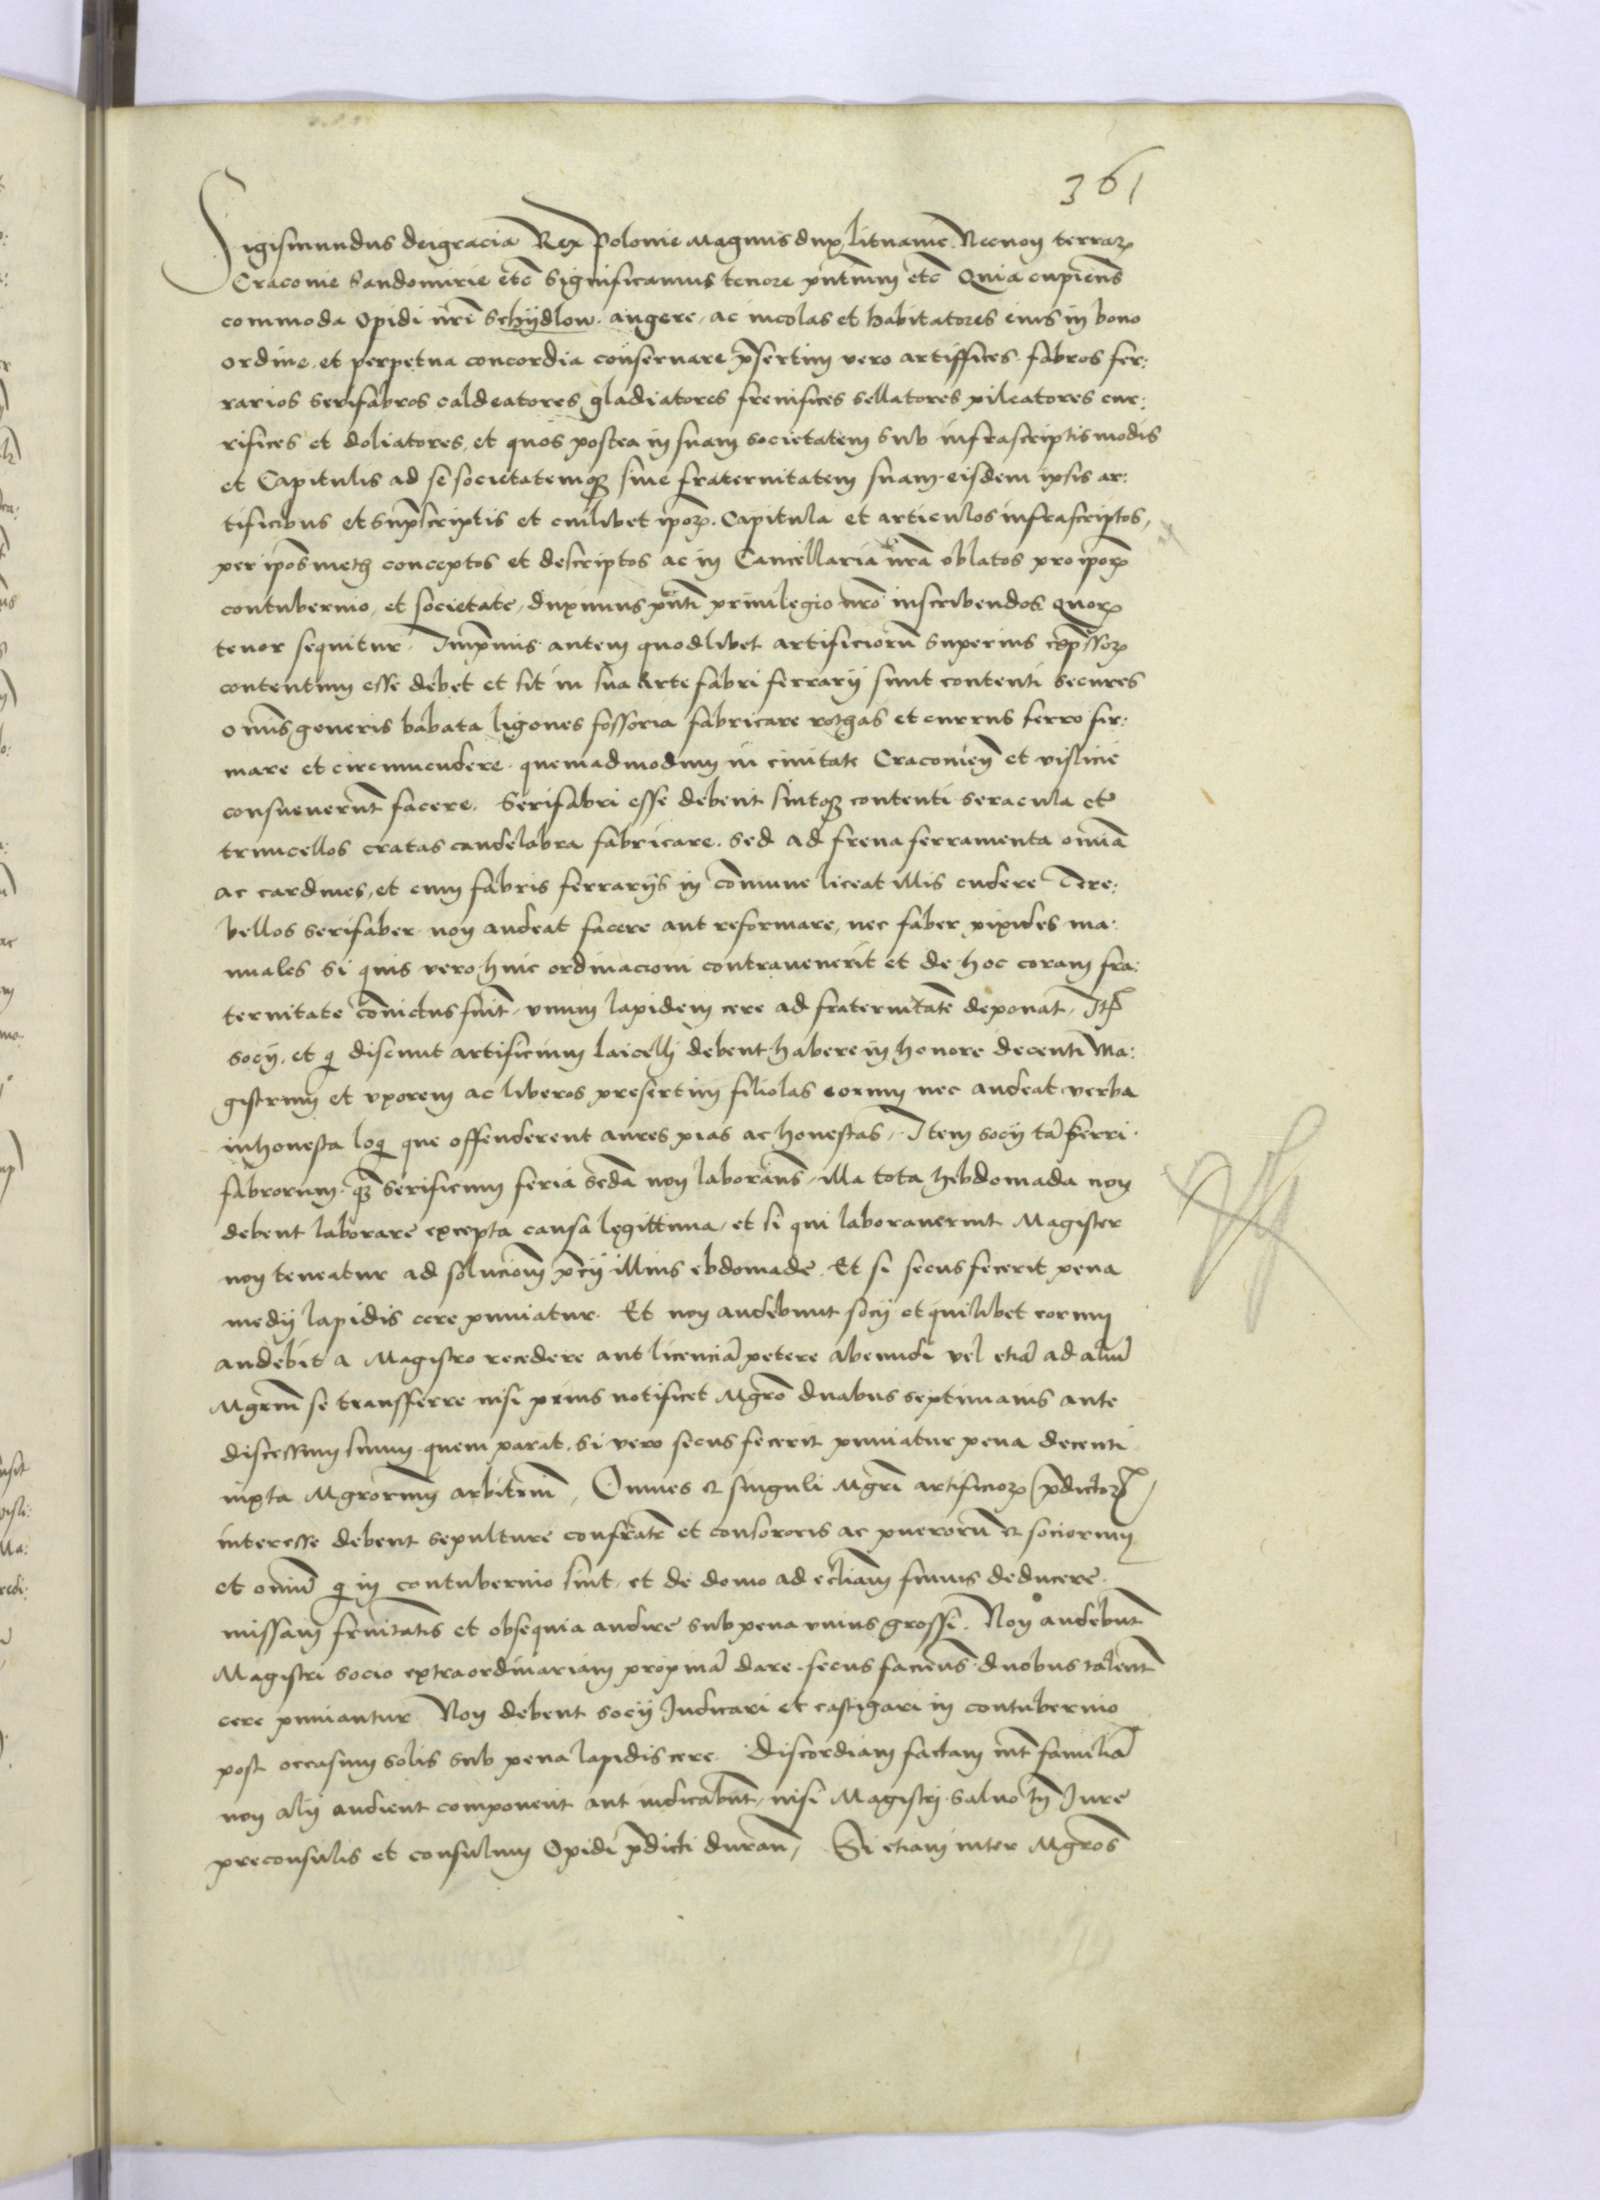 361
Sigismundus deigracia Rex Polonie Magnus dux lituanie. Necnon terrarꝝ
Cracouie Sandomirie etc̄ Significamus tenore pn̄tium etc̄ Quia cupiens
commoda Opidi nr̄i Schydlow. augere, ac incolas et habitatores eius in bono
ordine, et perpetua concordia conseruare p̄sertim vero artiffices fabros fer:
rarios serifabros caldeatores gladiatores frenifices sellatores pileatores cur:
rifices et doliatores, et quos postea in suam societatem sub infrascriptis modis
et Capitulis ad se societatemqꝫ siue fraternitatem suam eisdem ipsis ar:
tificibus et sup̄scriptis et cuilibet ip̄orꝝ. Capitula et articulos infrascriptos,
per ip̄os meth conceptos et descriptos ac in Cancellaria nr̄a oblatos pro ip̄orꝝ
contubernio, et societate, duximus pn̄ti priuilegio nr̄o inscribendos quorꝝ
tenor sequitur. Imp̄mis autem quodlibet artificiorū superius exp̄ssorꝝ
contentum esse debet et sit in sua Arte fabri ferrarij sunt contenti secures
om̄is generis babata ligones fossoria fabricare rotgas et currus ferro fir:
mare et circumcudere. quemadmodum in ciuitate Cracouien̄ et vislicie
consueuerūt facere. Serifabri esse debent sintqꝫ contenti seracula et
truncellos cratas candelabra fabricare. sed ad frena ferramenta om̄ia
ac cardines, et cum fabris ferrarijs in com̄une liceat illis cudere Tere:
bellos serifaber non audeat facere aut reformare, nec faber pixides ma:
nuales Si quis vero huic ordinacioni contrauenerit et de hoc coram fra:
ternitate conuictus fuit̄, vnum lapidem cere ad fraternitatē deponat. Itē
socij, et q̄ discunt artificium laicelli debent habere in honore decenti Ma:
gistrum et vxorem ac liberos presertim filiolas eorum nec audeat verba
inhonesta loq̄ que offenderent aures pias ac honestas. Item socij tā ferri
fabrorum qꝫ serificum feria secd̄a non laborans, illa tota hebdomada non
debent laborare excepta causa legittima, et si qui laborauerint Magister
non teneatur ad solucionē p̄cij illius ebdomade. Et si secus fecerit pena
medij lapidis cere puniatur. Et non audebunt socij et quilibet eorum
audebit a Magistro recedere aut licenciā petere abeundi vel etiā ad aliū
Mgr̄m se transfferre nisi prius notificet Mgr̄o duabus septimanis ante
discessum suum quem parat. Si vero secus fecerit puniatur pena decenti
iuxta Mgr̄orum arbitriū. Omnes et singuli Mgr̄i artificiorꝝ p̄dictorꝝ
interesse debent sepulture confratr̄ et consororis ac puerorū et sociorum
et om̄iū q̄ in contubernio sint, et de domo ad ecl̄iam funus deducere.
missam fr̄nitatis et obsequia audire sub pena vnius grossi. Non audebūt
Magistri socio extraordinariam propinā dare. secus faciens duobus talent̄
cere puniantur Non debent socij Judicari et castigari in contubernio
post occasum solis sub pena lapidis cere. Discordiam factam int̄ familiā
non alij audient component aut iudicabūt, nisi Magistri saluo tn̄ Jure
preconsulis et consulum Opidi p̄dicti duran̄. Si etiam inter Mgr̄os